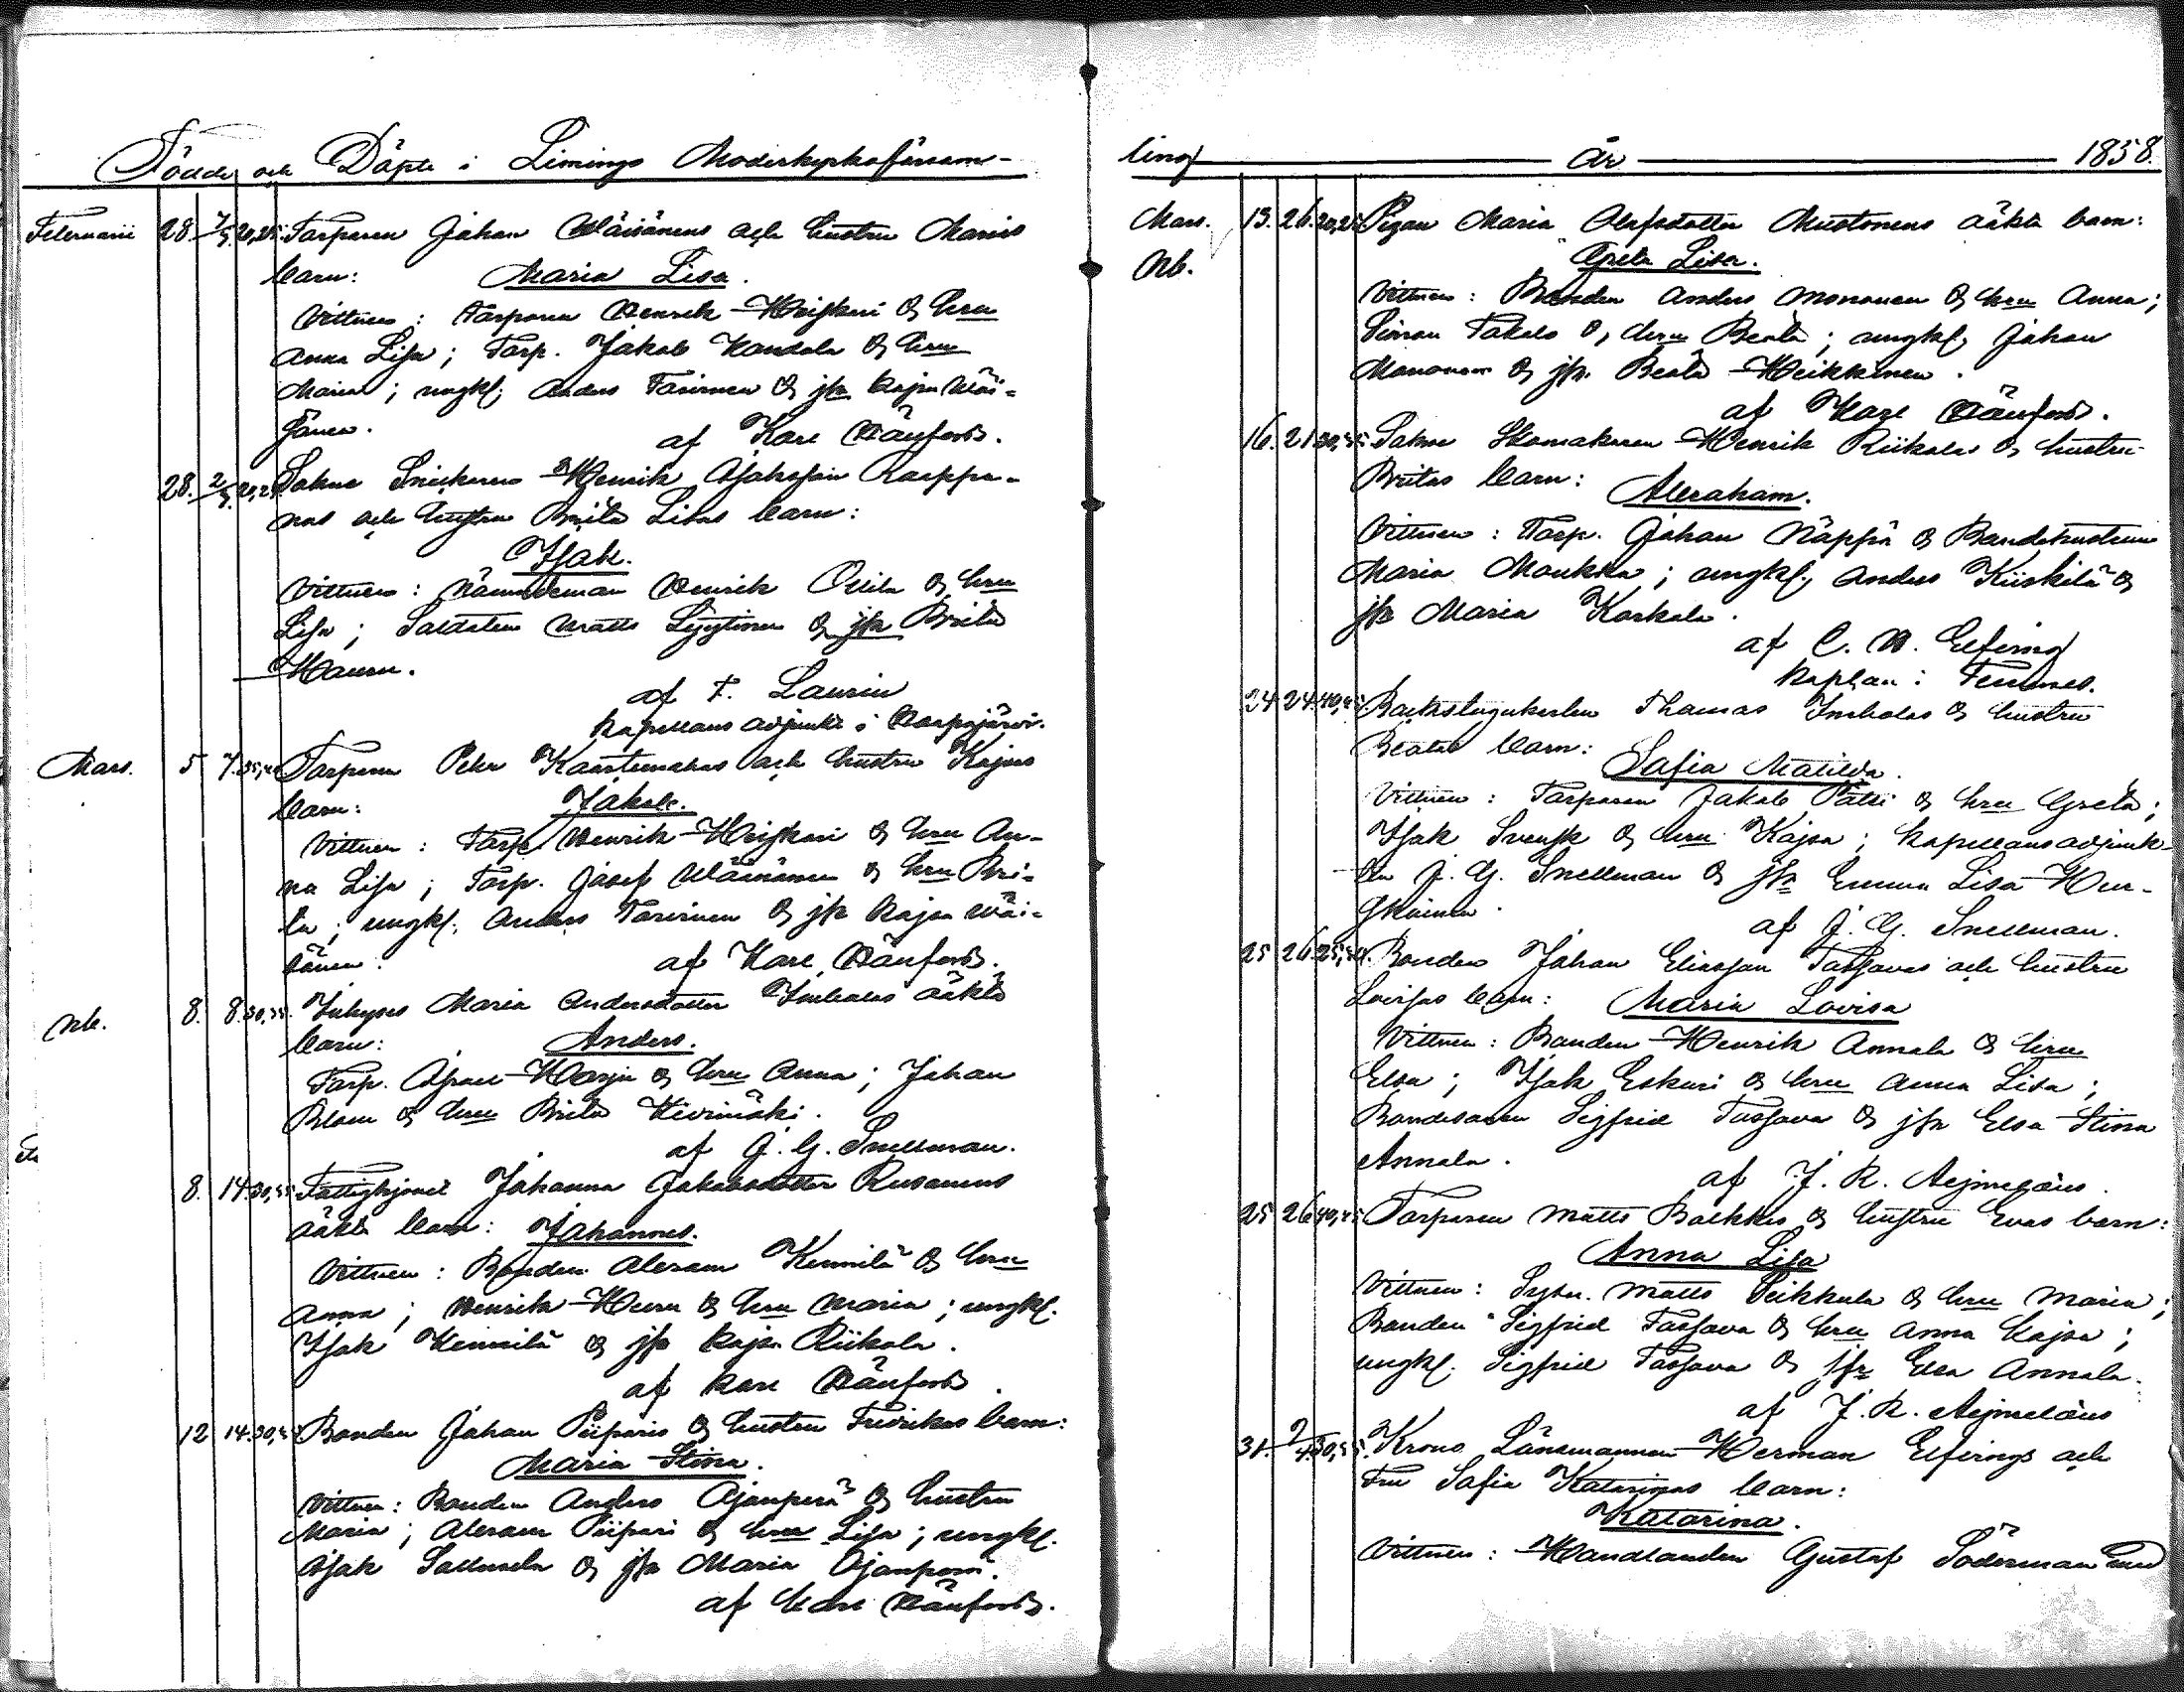 Födde och Döpte i Limingo Moderkyrkoförsam-
Februarii 28. 7/3. 20,25. Torparen Johan Wäisänens och hustru Marias
barn: Maria Lisa.
Vittnen: Torparen Henrik Heiskari & hru
Anna Lisa; Torp. Jakob Kandola & hru
Maria; ungkl. Anders Toivinen & jfr Kajsa Wäi-
sänen.
af Karl Hänfors.
28. 2/3. 20,25 Sokne Snickaren Henrik Isaksson Karppi-
nens och hustru Brita Lisas barn:
Isak.
Vittnen: Nämndeman Henrik Ollila & hru
Lisa; Soldaten Matts Lyytinen & jfr Brita
Hauru.
af F. Laurin
Kapellans adjunkt i Haapajärvi.
Mars. 5 7. 35,40 Torparen Petter Kaartinahos och hustru Kajsas
barn: Jakob.
Vittnen: Torp. Henrik Heiskari & hru An-
na Lisa; Torp. Josef Wäisänen & hru Bri-
ta; ungkl. Anders Toivinen & jfr Kajsa Wäi-
sänen.
af Karl Hänfors.
Nb. 8. 8. 30,35. Inhyses Maria Andersdotter Imholas oäkta
barn: Anders.
Torp. Isak Harju & hru Anna; Johan
Blom & hru Brita Kivimäki.
af J. G. Snellman.
8. 14. 30,35 Fattighjonet Johanna Jakobsdotter Rusanens
oäkta barn: Johannes.
Vittnen: Bonden Abram Kennilä & hru
Anna; Henrik Huru & hru Maria; ungkl.
Isak Kennilä & jfr Kajsa Riikola.
af Karl Hänfors.
12 14. 30,35 Bonden Johan Piiparis & hustru Fredrikas barn:
Maria Stina.
Vittnen: Bonden Anders Ojanperä & hustru
Maria; Abram Piipari & hru Lisa; ungkl.
Isak Sallinela & jfr Maria Ojanperä.
af Karl Hänfors.
ling År 1858.
Mars. 13. 26. 20,25 Pigan Maria Olofsdotter Mustonens oäkta barn:
Nb. Greta Lisa.
Vittnen: Bonden Anders Mononen & hru Anna;
Simon Takalo & hru Beata; ungkl. Johan
Mononen & jfr. Beata Heikkinen.
af Karl Hänfors.
16. 21. 30,35. Sokne Skomakaren Henrik Riikolas & hustru
Britas barn: Abraham.
Vittnen: Torp. Johan Näppä & Bondehustrun
Maria Moukka; ungkl. Anders Kiiskilä &
jfr Maria Korkala.
af C. W. Elfving
Kaplan i Temmes.
24 24. 40,45. Backstugukarlen Thomas Imholas & hustru
Beatas barn: Sofia Matilda.
Vittnen: Torparen Jakob Patsi & hru Greta;
Isak Svensk & hru Kajsa; Kapellansadjunk-
ten J. G. Snellman & jfr Emma Lisa Hur-
skainen.
af J. G. Snellman.
25 26. 25,30. Bonden Johan Eliasson Tassavas och hustru
Lovisas barn: Maria Lovisa
Vittnen: Bonden Henrik Annala & hru
Elsa; Isak Eskuri & hru Anna Lisa;
Bondesonen Sigfrid Tassava & jfr Elsa Stina
Annala.
af J. R. Aejmelæus.
25 26 40,45 Torparen Matts Bäckkis & hustru Evas barn:
Anna Lisa
Vittnen: Sytn. Matts Peikkula & hru Maria;
Bonden Sigfrid Tassava & hru Anna Kajsa;
ungkl. Sigfrid Tassava & jfr Elsa Annala.
af J. R. Aejmelæus
31. 9/4. 30,35. Krono Länsmannen Herman Elfvings och
Fru Sofia Katarinas barn:
Katarina.
Vittnen: Handlanden Gustaf Söderman med